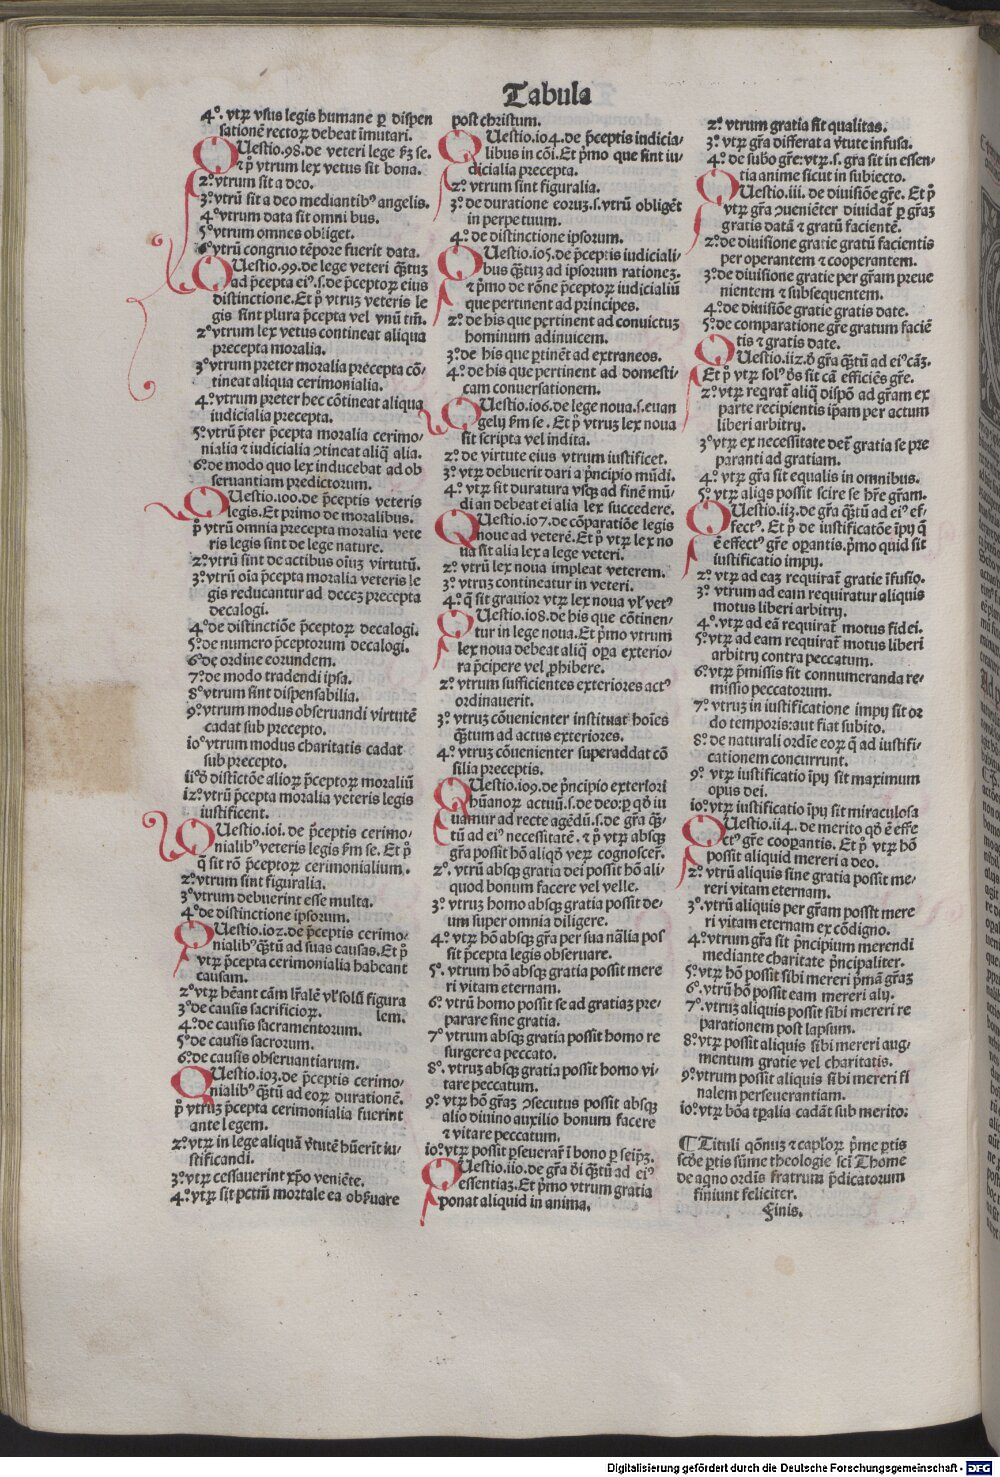 Tabula
4º. vtrꝝ vsus legis humane ꝑ dispen
sationē rectoꝝ debeat īmutari.
QUestio.98.de veteri lege ẜm se.
⁊ pº vtrum lex vetus sit bona.
2º vtrum sit a deo.
3º vtrū sit a deo mediantibꝰ angelis.
4º vtrum data sit omni bus.
5º vtrum omnes obliget.
6º vtrū congruo tēpore fuerit data.
QUestio.99.de lege veteri q̄ꝫtuꝫ
ad p̄cepta eiꝰ.s.de p̄ceptoꝝ eius
distinctione.Et pº vtruꝫ veteris le
gis sint plura p̄cepta vel vnū tm̄.
2º vtrum lex vetus contineat aliqua
precepta moralia.
3º vtrum preter moralia precepta cō-
tineat aliqua cerimonialia.
4º vtrum preter hec cōtineat aliqua
iudicialia precepta.
5º vtrū p̄ter p̄cepta moralia cerimo-
nialia ⁊ iudicialia ꝯtineat aliq̄ alia.
6º de modo quo lex inducebat ad ob
seruantiam predictorum.
QUestio.100.de p̄ceptis veteris
legis.Et primo de moralibus.
pº vtrū omnia precepta moralia vete
ris legis sint de lege nature.
2º vtrū sint de actibus oīuꝫ virtutū.
3º vtrū oīa p̄cepta moralia veteris le
gis reducantur ad deceꝫ precepta
decalogi.
4º de distinctiōe p̄ceptoꝝ decalogi.
5º de numero p̄ceptorum decalogi.
6º de ordine eorundem.
7º de modo tradendi ipsa.
8º vtrum sint dispensabilia.
9º vtrum modus obseruandi virtutē
cadat sub precepto.
10º vtrum modus charitatis cadat
sub precepto.
11º ð distīctōe alioꝝ p̄ceptoꝝ moraliū
12º vtrū p̄cepta moralia veteris legis
iustificent.
QUestio.101.de p̄ceptis cerimo-
nialibꝰ veteris legis ẜm se. Et pº
q̄ sit rō p̄ceptoꝝ cerimonialium.
2º vtrum sint figuralia.
3º vtrum debuerint esse multa.
4º de distinctione ipsorum.
QUestio.102.de p̄ceptis cerimo-
nialibꝰ q̄ꝫtū ad suas causas.Et pº
vtꝝ p̄cepta cerimonialia habeant
causam.
2º vtꝝ hēant cām lr̄alē vl̓ solū figura
3º de causis sacrificioꝝ. lem.
4º de causis sacramentorum.
5º de causis sacrorum.
6º de causis obseruantiarum.
QUestio.103.de p̄ceptis cerimo-
nialibꝰ q̄ꝫtū ad eoꝝ durationē.
pº vtruꝫ p̄cepta cerimonialia fuerint
ante legem.
2º vtꝝ in lege aliqua v̄tutē hūerīt iu-
stificandi.
3º vtꝝ cessauerint xp̄o veniēte.
4º vtꝝ sit pctm̄ mortale ea obẜuare
post christum.
QUestio.104.de p̄ceptis iudicia-
libus in cōi.Et p̄mo que sint iu-
dicialia precepta.
2º vtrum sint figuralia.
3º de duratione eoruꝫ.s.vtrū obligēt
in perpetuum.
4º de distinctione ipsorum.
QUestio.105.de p̄ceptis iudiciali-
bus q̄ꝫtuꝫ ad ipsorum rationeꝫ.
⁊ p̄mo de rōne p̄ceptoꝝ iudicialiū
que pertinent ad principes.
2º de his que pertinent ad conuictuꝫ
hominum adinuicem.
3º de his que ꝑtinēt ad extraneos.
4º de his que pertinent ad domesti-
cam conuersationem.
QUestio.106.de lege noua.s.euan
gelij ẜm se. Et pº vtruꝫ lex noua
sit scripta vel indita.
2º de virtute eius vtrum iustificet.
3º vtꝝ debuerit dari a p̄ncipio mūdi.
4º vtꝝ sit duratura vsqꝫ ad finē mū-
di an debeat ei alia lex succedere.
QUestio.107.de cōparatiōe legis
noue ad veterē.Et pº vtꝝ lex no
ua sit alia lex a lege veteri.
2º vtrū lex noua impleat veterem.
3º vtruꝫ contineatur in veteri.
4º q̄ sit grauior vtꝝ lex noua vl̓ vetꝰ
QUestio.108.de his que cōtinen-
tur in lege noua.Et p̄mo vtrum
lex noua debeat aliq̄ oꝑa exterio-
ra p̄cipere vel ꝓhibere.
2º vtrum sufficientes exteriores actꝰ
ordinauerit.
3º vtruꝫ cōuenienter instituat hoīes
q̄ꝫtum ad actus exteriores.
4º vtruꝫ cōuenienter superaddat cō
silia preceptis.
QUestio.109.de p̄ncipio exteriori
hūanoꝝ actuū.s.de deo:ꝓ qº iu
uamur ad recte agēdū.s.de gr̄a q̄ꝫ-
tū ad eiꝰ necessitatē. ⁊ pº vtꝝ absqꝫ
gr̄a possit hō aliqð veꝝ cognoscer̄.
2º. vtrū absqꝫ gratia dei possit hō ali-
quod bonum facere vel velle.
3º vtruꝫ homo absqꝫ gratia possit de-
um super omnia diligere.
4º vtꝝ hō absqꝫ gr̄a per sua nālia pos
sit p̄cepta legis obseruare.
5º. vtrum hō absqꝫ gratia possit mere
ri vitam eternam.
6º vtrū homo possit se ad gratiaꝫ pre-
parare sine gratia.
7º vtrum absqꝫ gratia possit homo re
surgere a peccato.
8º. vtruꝫ absqꝫ gratia possit homo vi-
tare peccatum.
9º vtꝝ hō gr̄aꝫ ꝯsecutus possit absqꝫ
alio diuino auxilio bonum facere
⁊ vitare peccatum.
10º vtꝝ possit ꝑseuerar̄ ī bono ꝑ seip̄ꝫ.
QUestio.110.de gr̄a ði q̄ꝫtū ad eiꝰ
essentiaꝫ.Et p̄mo vtrum gratia
ponat aliquid in anima.
2º vtrum gratia sit qualitas.
3º vtꝝ gr̄a differat a v̄tute infusa.
4º de subo gr̄e:vtꝝ.s.gr̄a sit in essen-
tia anime sicut in subiecto.
QUestio.111.de diuisiōe gr̄e. Et pº
vtꝝ gr̄a ꝯueniēter diuidat̄ ꝑ gr̄aꝫ
gratis datā ⁊ gratū facientē.
2º de diuisione gratie gratū facientis
per operantem ⁊ cooperantem.
3º de diuisione gratie per gr̄am preue
nientem ⁊ subsequentem.
4º de diuisiōe gratie gratis date.
5º de comparatione gr̄e gratum faciē
tis ⁊ gratis date.
QUestio.112.ð gr̄a q̄ꝫtū ad eiꝰ cāꝫ.
Et pº vtꝝ solꝰ ðs sit cā efficiēs gr̄e.
2º vtꝝ reqrat̄ aliq̄ dispō ad gr̄am ex
parte recipientis ip̄am per actum
liberi arbitrij.
3º vtꝝ ex necessitate det̄ gratia se pre
paranti ad gratiam.
4º vtꝝ gr̄a sit equalis in omnibus.
5º vtꝝ aliqs possit scire se hr̄e gr̄am.
QUestio.113.de gr̄a q̄ꝫtū ad eiꝰ ef-
fectꝰ. Et pº de iustificatōe īpij q̄
ē effectꝰ gr̄e oꝑantis.p̄mo quid sit
iustificatio impij.
2º vtꝝ ad eaꝫ requirat̄ gratie īfusio.
3º vtrum ad eam requiratur aliquis
motus liberi arbitrij.
4º.vtꝝ ad eā requirat̄ motus fidei.
5º vtꝝ ad eam requirat̄ motus liberi
arbitrij contra peccatum.
6º vtꝝ p̄missis sit connumeranda re-
missio peccatorum.
7º vtruꝫ in iustificatione impij sit or
do temporis:aut fiat subito.
8º de naturali ordīe eoꝝ q̄ ad iustifi-
cationem concurrunt.
9º vtꝝ iustificatio īpij sit maximum
opus dei.
10º vtꝝ iustificatio īpij sit miraculosa
QUestio.114.de merito qð ē effe
ctꝰ gr̄e cooꝑantis. Et pº vtꝝ hō
possit aliquid mereri a deo.
2º vtrū aliquis sine gratia possit me-
reri vitam eternam.
3º.vtrū aliquis per gr̄am possit mere
ri vitam eternam ex cōdigno.
4º vtrum gr̄a sit p̄ncipium merendi
mediante charitate p̄ncipaliter.
5º vtꝝ hō possit sibi mereri p̄mā gr̄aꝫ
6º. vtrū hō possit eam mereri alij.
7º vtruꝫ aliquis possit sibi mereri re
parationem post lapsum.
8º vtꝝ possit aliquis sibi mereri aug-
mentum gratie vel charitatis.
9º vtrum possit aliquis sibi mereri fi
nalem perseuerantiam.
10º vtꝝ bōa tꝑalia cadāt sub merito.
¶ Tituli qōnuꝫ ⁊ capl̓oꝝ p̄me ꝑtis
scd̄e ꝑtis sūme theologie scī Thome
de aqno ordīs fratrum p̄dicatorum
finiunt feliciter.
Finis.
Digitalisierung gefördert durch die Deutsche Forschungsgemeinschaft - DFG